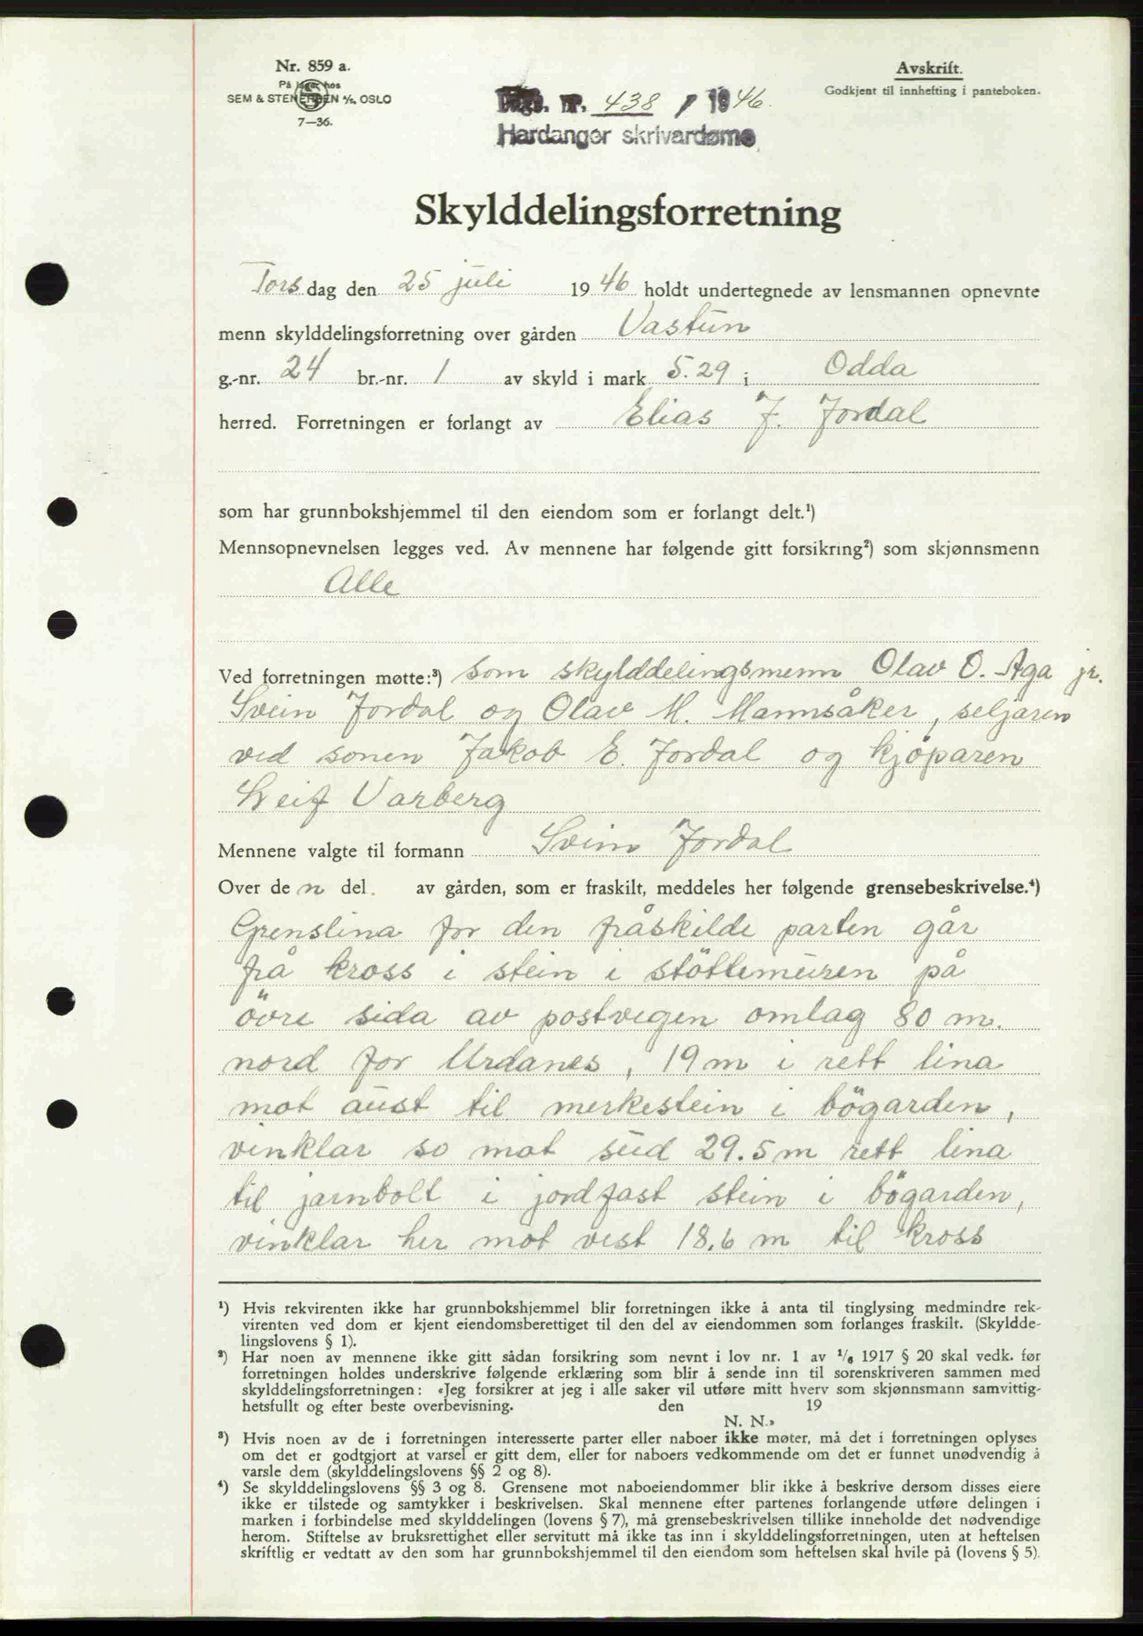 Nr. 859 a.
På lager hos
SEM & STENERSEN A/S, OSLO
7—36.
Avskrift.
Godkjent til innhefting i panteboken.
nr. 438 / 1946.
Hardanger skrivardøme
Skylddelingsforretning
Torsdag den 25 juli 1946 holdt undertegnede av lensmannen opnevnte
menn skylddelingsforretning over gården Vastun
g.-nr. 24 br.-nr. 1 av skyld i mark 5.29 i Odda
herred. Forretningen er forlangt av Elias J. Jordal
som har grunnbokshjemmel til den eiendom som er forlangt delt.¹)
Mennsopnevnelsen legges ved. Av mennene har følgende gitt forsikring²) som skjønnsmenn
Alle
Ved forretningen møtte:³) som skylddelingsmenn Olav O. Aga jr.
Svein Jordal og Olav M. Mannsåker, seljaren
ved sonen Jakob E. Jordal og kjöparen
Leif Varberg
Mennene valgte til formann Svein Jordal
Over den del. av gården, som er fraskilt, meddeles her følgende grensebeskrivelse.⁴)
Grenslina for den fråskilde parten går
frå kross i stein i stöttemuren på
övre sida av postvegen omlag 80 m.
nord for Urdanes, 19 m i rett lina
mot aust til merkestein i bögarden,
vinklar so mot sud 29.5 m rett lina
til jarnbolt i jordfast stein i bögarden,
vinklar her mot vest 18,6 m til kross
¹) Hvis rekvirenten ikke har grunnbokshjemmel blir forretningen ikke å anta til tinglysing medmindre rek-
virenten ved dom er kjent eiendomsberettiget til den del av eiendommen som forlanges fraskilt. (Skyldde-
lingslovens § 1).
²) Har noen av mennene ikke gitt sådan forsikring som nevnt i lov nr. 1 av ¹/₆ 1917 § 20 skal vedk. før
forretningen holdes underskrive følgende erklæring som blir å sende inn til sorenskriveren sammen med
skylddelingsforretningen: «Jeg forsikrer at jeg i alle saker vil utføre mitt hverv som skjønnsmann samvittig-
hetsfullt og efter beste overbevisning. den 19
N. N.»
³) Hvis noen av de i forretningen interesserte parter eller naboer ikke møter, må det i forretningen oplyses
om det er godtgjort at varsel er gitt dem, eller for naboers vedkommende om det er funnet unødvendig å
varsle dem (skylddelingslovens §§ 2 og 8).
⁴) Se skylddelingslovens §§ 3 og 8. Grensene mot naboeiendommer blir ikke å beskrive dersom disses eiere
ikke er tilstede og samtykker i beskrivelsen. Skal mennene efter partenes forlangende utføre delingen i
marken i forbindelse med skylddelingen (lovens § 7), må grensebeskrivelsen tillike inneholde det nødvendige
herom. Stiftelse av bruksrettighet eller servitutt må ikke tas inn i skylddelingsforretningen, uten at heftelsen
skriftlig er vedtatt av den som har grunnbokshjemmel til den eiendom som heftelsen skal hvile på (lovens § 5).